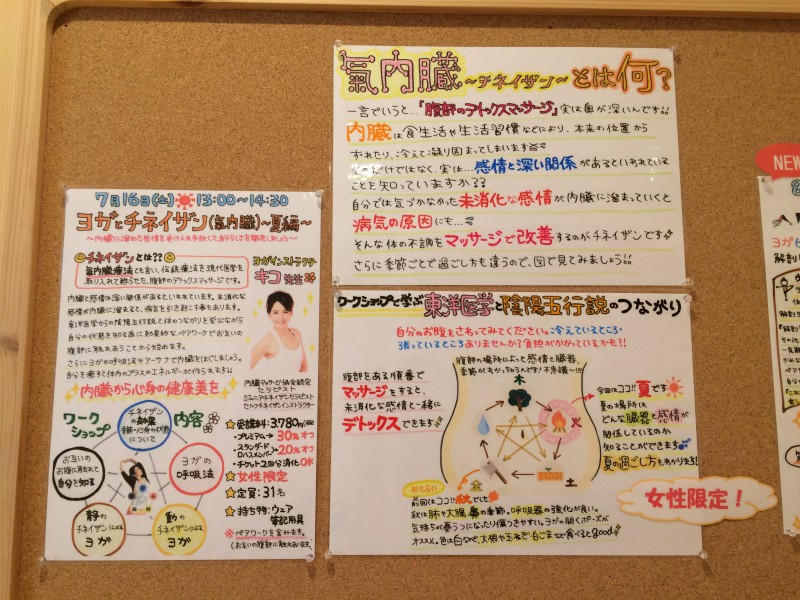 氣内臓
~チネイザン~とは何?
一言でいうと…「腹部のデトックスマッサージ」実は奥が深いんです!!
内臓は食生活や生活習慣などにより、本来の位置から
ずれたり、冷えて凝り固まってしまいます
それだけではなく、実は…感情と深い関係があるといわれている
ことを知っていますか??
自分では気づかなかった未消化な感情が内臓に溜まっていくと
病気の原因にも…
そんな体の不調をマッサージで改善するのがチネイザンです
さらに季節ごとで過ごし方も違うので、図で見てみましょう!!
7月16日(土)13:00~14:30
ヨガとチネイザン(氣内臓)~夏編~
チネイザンとは??
氣内臓療法とも言い、伝統療法と現代医学を
取り入れて甦らせた、腹部のデトックスマッサージです。
ヨガインストラクター
キコ先生
内臓と感情は深い関係があるといわれています。未消化な
感情が内臓に溜まると、病気を引き起こす事もあります。
東洋医学からの陰陽五行説と体のつながりを学びながら
自分の状態を知る為に効果的なペアワークでお互いの
腹部に触れあうことから始めます。
さらにヨガの呼吸法やアーサナで内臓をほぐしましょう。
自分を癒すと体内のプラスのエネルギーが作られますよ!!
内臓から心身の健康美を
内臓マッサージ協会認定
セラピスト
ジュニアチネイザンセラピスト
セルフチネイザンインストラクター
ワークショップ
内容
チネイザンの
効果
季節・心身の状態
について
お互いの
お腹に触れて
自分を知る
ヨガの
呼吸法
静の
チネイザンによる
ヨガ
動の
チネイザンによる
ヨガ
★受講料:3,780円
・プレミアム→30%オフ
・スタンダード
→20%オフ
・チケット2回分消化OK
★女性限定
★定員:31名
★持ち物:ウェア
筆記用具
※ペアワークを含みます。
(お互いの腹部に触れあいます。)
ワークショップで学ぶ東洋医学と陰陽五行説のつながり
自分のお腹をさわってみてください。冷えているところ・
張っているところありませんか?負担がかかっているかも?!
腹部の場所によって感情と臓器、
季節がわかっちゃうんです!不思議~!!!
腹部をある順番で
マッサージをすると、
未消化な感情と一緒に
デトックスできます
木
火
土
金
水
今回はココ!!夏です
夏の場所は
どんな臓器と感情が
関係しているのか
知ることができます
夏の過ごし方もわかります!
おさらい
前回はココ!!秋でした
秋は肺や大腸、鼻の季節。呼吸器の強化が良い。
気持ちが憂うつになったり傷つきやすい。ヨガの開くポーズが
オススメ。色は白なので、大根や玉ねぎ・白ごまなど食べるとgood
女性限定!
NEW